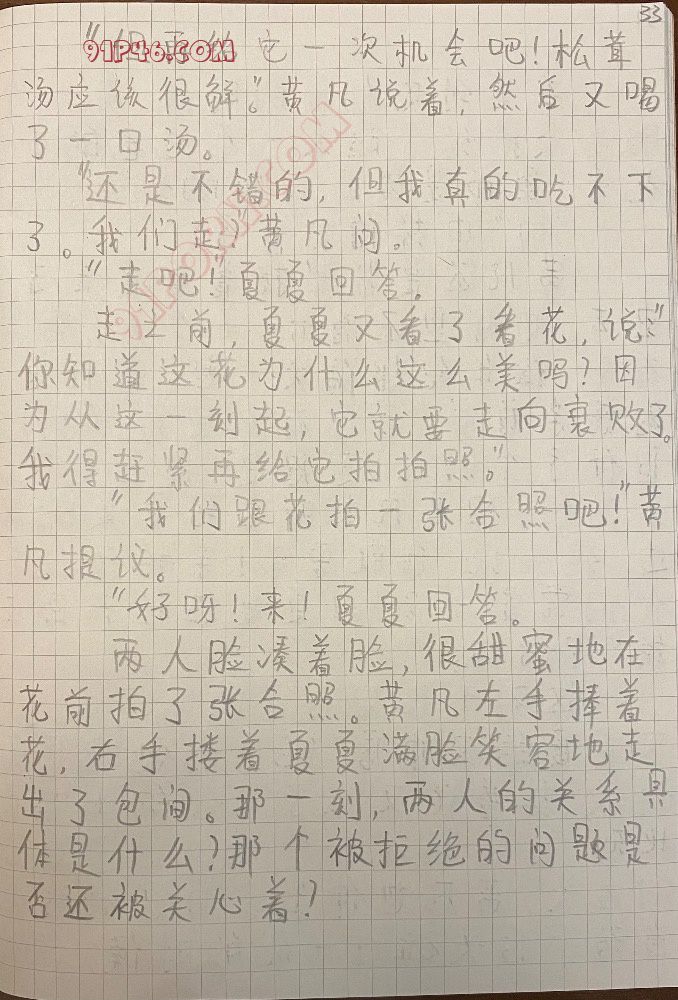 33
91P46.COM
它一次机会吧！松茸
汤应该很鲜。”黄凡说着，然后又喝
了一口汤。
“还是不错的，但我真的吃不下
了。我们走？”黄凡问。
“走吧！”夏夏回答。
走之前，夏夏又看了看花，说：“
你知道这花为什么这么美吗？因
为从这一刻起，它就要走向衰败了。
我得赶紧再给它拍拍照。”
“我们跟花拍一张合照吧！”黄
凡提议。
“好呀！来！夏夏回答。
两人脸凑着脸，很甜蜜地在
花前拍了张合照。黄凡左手捧着
花，右手搂着夏夏满脸笑容地走
出了包间。那一刻，两人的关系具
体是什么？那个被拒绝的问题是
否还被关心着？